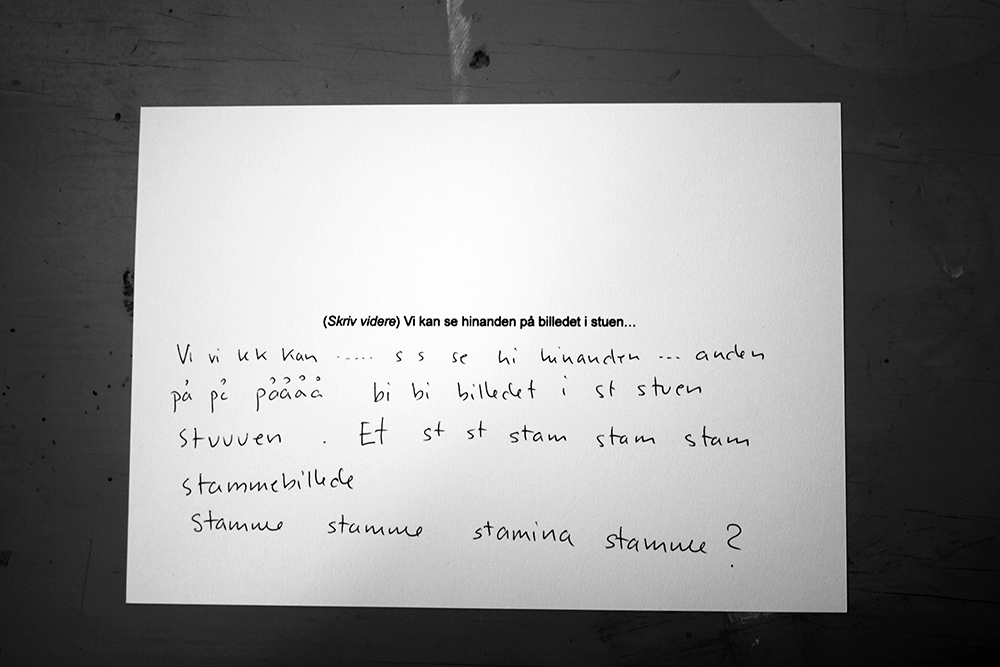 (Skriv videre) Vi kan se hinanden på billedet i stuen...
Vi vi kk kan ..... s s se hi hinanden ... anden
på på påååå bi bi billedet i st stuen
stuuuen . Et st st stam stam stam
stammebillede
Stamme stamme stamina stamme ?